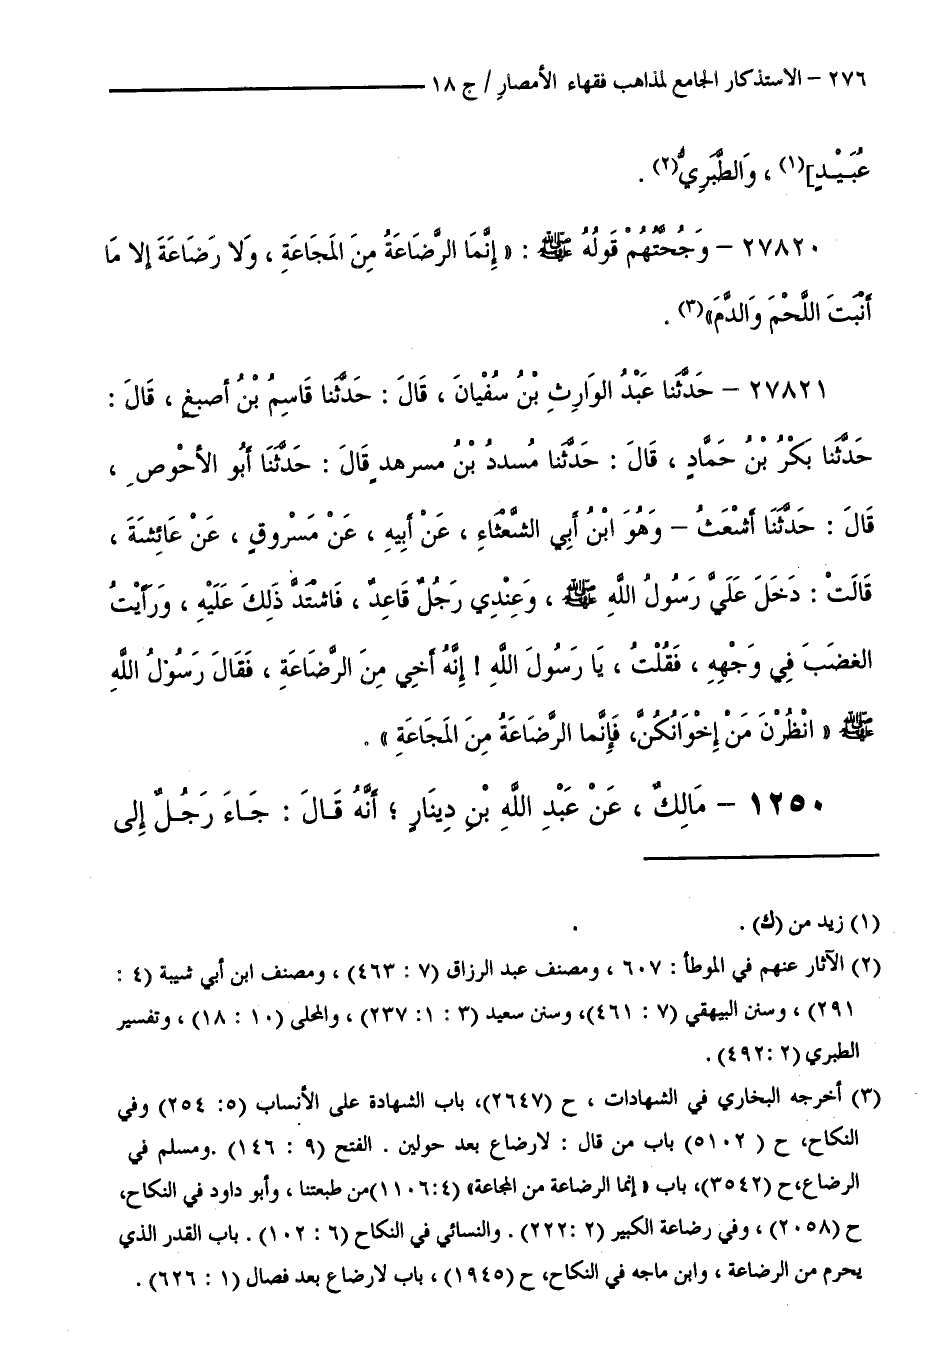 ٢٧٦ – الاستذكار الجامع لمذاهب فقهاء الأمصار / ج ١٨
عُبَيْدٍ](١) ، وَالطَّبَرِيُّ(٢) .
٢٧٨٢٠ – وَحُجَّتُهُمْ قَولُهُ ﷺ : « إِنَّمَا الرَّضَاعَةُ مِنَ المَجَاعَةِ ، وَلا رَضَاعَةَ إلا مَا
أَنْبَتَ اللَّحْمَ وَالدَّمَ»(٣) .
٢٧٨٢١ – حَدَّثَنا عَبْدُ الوَارِثِ بْنُ سُفْيانَ ، قَالَ : حَدَّثَنا قَاسِمُ بْنُ أصبغٍ ، قَالَ :
حَدَّثَنا بَكْرُ بْنُ حَمَّادٍ ، قَالَ : حَدَّثَنا مُسددُ بْنُ مسرهدٍ قَالَ : حَدَّثَنَا أَبُو الأحْوصِ ،
قَالَ : حَدَّثَنَا أَشْعَثُ – وَهُوَ ابْنُ أَبِي الشَّعْثَاءِ ، عَنْ أَبِيهِ ، عَنْ مَسْرُوقٍ ، عَنْ عَائِشةَ ،
قَالَتْ : دَخَلَ عَلَيَّ رَسُولُ اللَّهِ ﷺ ، وَعِنْدِي رَجُلٌ قَاعِدٌ ، فَاشْتَدَّ ذَلِكَ عَلَيْهِ ، وَرَأَيْتُ
الغضَبَ فِي وَجْهِهِ ، فَقُلْتُ ، يَا رَسُولَ اللَّهِ ! إِنَّهُ أَخِي مِنَ الرَّضَاعَةِ ، فَقَالَ رَسُوْلُ اللَّهِ
ﷺ « انْظُرْنَ مَنْ إِخْوَانُكُنَّ، فَإِنَّما الرَّضَاعَةُ مِنَ المَجَاعَةِ » .
١٢٥٠ – مَالِكٌ ، عَنْ عَبْدِ اللَّهِ بْنِ دِينَارٍ ؛ أَنَّهُ قَالَ : جَاءَ رَجُلٌ إِلى
(١) زيد من (ك) .
(٢) الآثار عنهم في الموطأ : ٦٠٧ ، ومصنف عبد الرزاق (٧ : ٤٦٣) ، ومصنف ابن أبي شيبة (٤ :
٢٩١) ، وسنن البيهقي (٧ : ٤٦١)، وسنن سعيد (٣ : ١: ٢٣٧) ، والمحلى (١٠ : ١٨) ، وتفسير
الطبري (٢ :٤٩٢) .
(٣) أخرجه البخاري في الشهادات ، ح (٢٦٤٧)، باب الشهادة على الأنساب (٥: ٢٥٤) وفي
النكاح، ح ( ٥١٠٢) باب من قال : لارضاع بعد حولين . الفتح (٩ : ١٤٦) .ومسلم في
الرضاع،ح (٣٥٤٢)، باب « إنما الرضاعة من المجاعة» (٤:١١٠٦)من طبعتنا ، وأبو داود في النكاح،
ح (٢٠٥٨) ، وفي رضاعة الكبير (٢ :٢٢٢) . والنسائي في النكاح (٦ : ١٠٢) . باب القدر الذي
يحرم من الرضاعة ، وابن ماجه في النكاح، ح (١٩٤٥) ، باب لارضاع بعد فصال (١ : ٦٢٦) .